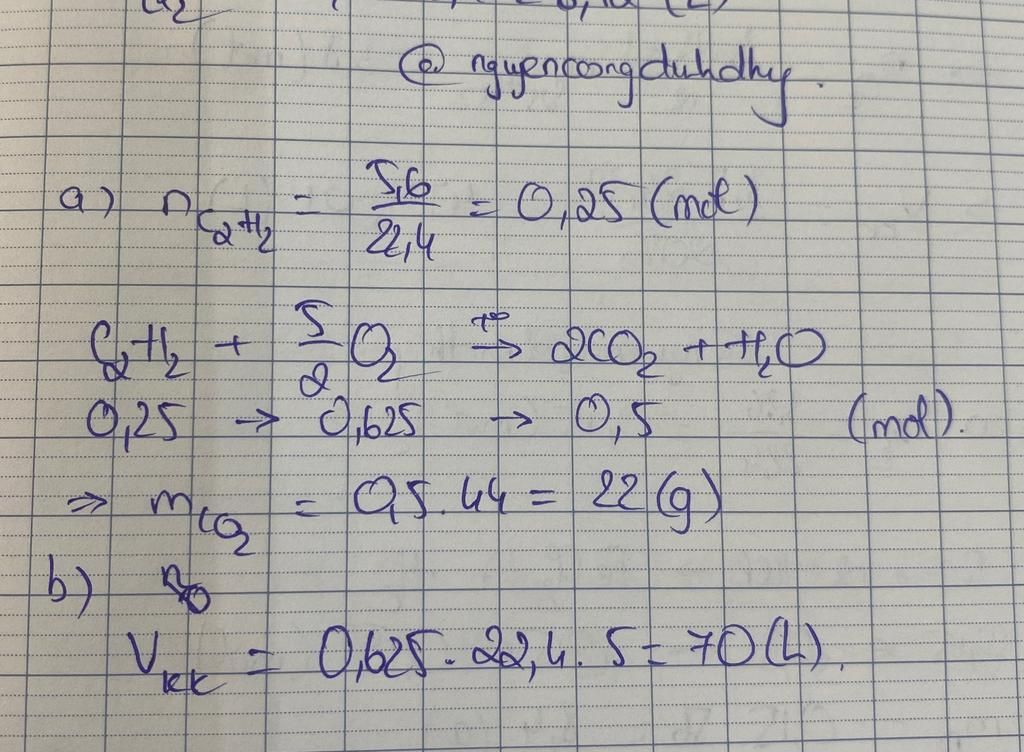 @ nguyencongduhdhy.
a) n C₂H₂ = 5,6/22,4 = 0,25 (mol)
C₂H₂ + 5/2 O₂ t° → 2CO₂ + H₂O
0,25 → 0,625 → 0,5 (mol).
⇒ m CO₂ = 0,5 . 44 = 22 (g)
b)
V kk = 0,625 . 22,4 . 5 = 70 (L).